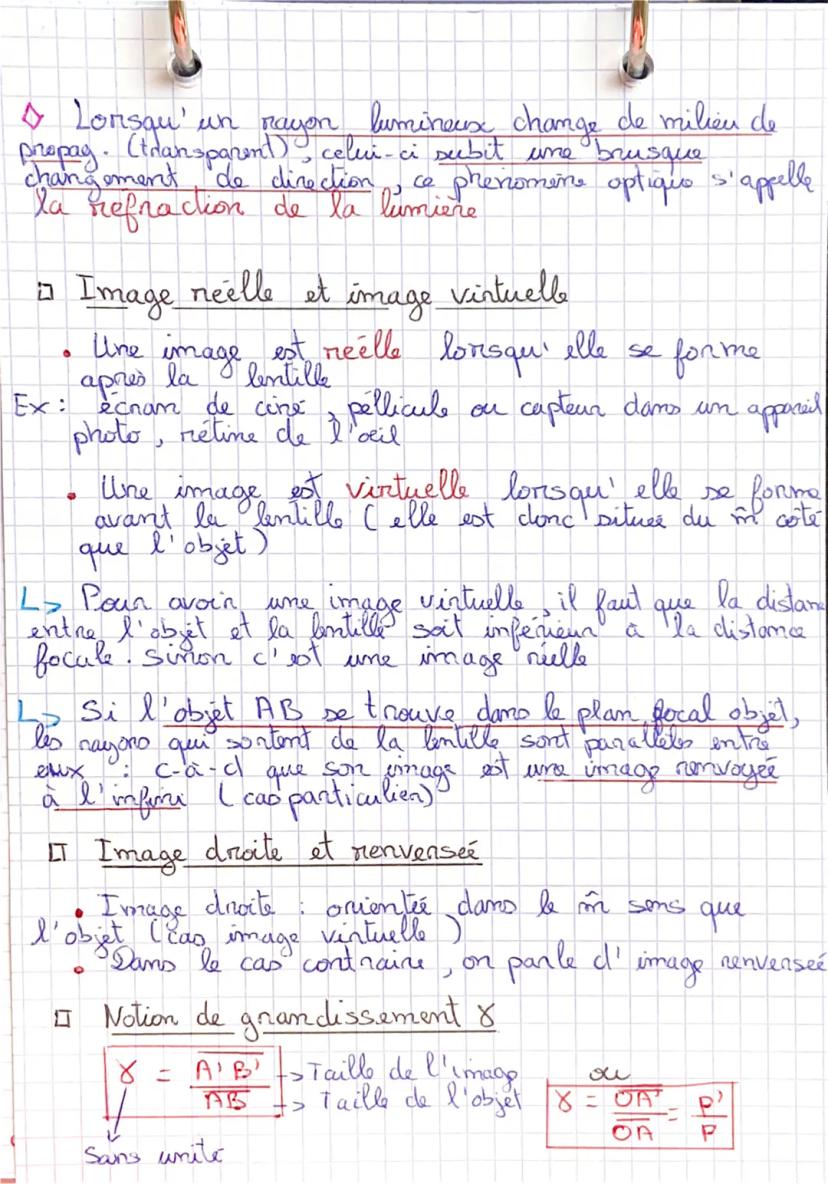 ◇ Lorsqu'un rayon lumineux change de milieu de
propag. (transparent), celui-ci subit une brusque
changement de direction, ce phénomène optique s'appelle
la réfraction de la lumière
□ Image réelle et image virtuelle
• Une image est réelle lorsqu'elle se forme
après la lentille
Ex : écran de ciné, péllicule ou capteur dans un appareil
photo, rétine de l'oeil
• Une image est virtuelle lorsqu'elle se forme
avant la lentille (elle est donc située du m̂ coté
que l'objet)
↳ Pour avoir une image virtuelle, il faut que la distan
entre l'objet et la lentille soit inférieur à la distance
focale. Sinon c'est une image réelle
↳ Si l'objet AB se trouve dans le plan focal objet,
les rayons qui sortent de la lentille sont parallèles entre
eux : c-à-d que son image est une image renvoyée
à l'infini (cas particulier)
□ Image droite et renverseé
• Image droite : orientée dans le m̂ sens que
l'objet (cas image virtuelle)
• Dans le cas contraire, on parle d'image renverseé
□ Notion de grandissement γ
γ = A'B' / AB → Taille de l'image → Taille de l'objet
ou
γ = OA' / OA = P' / P
Sans unité